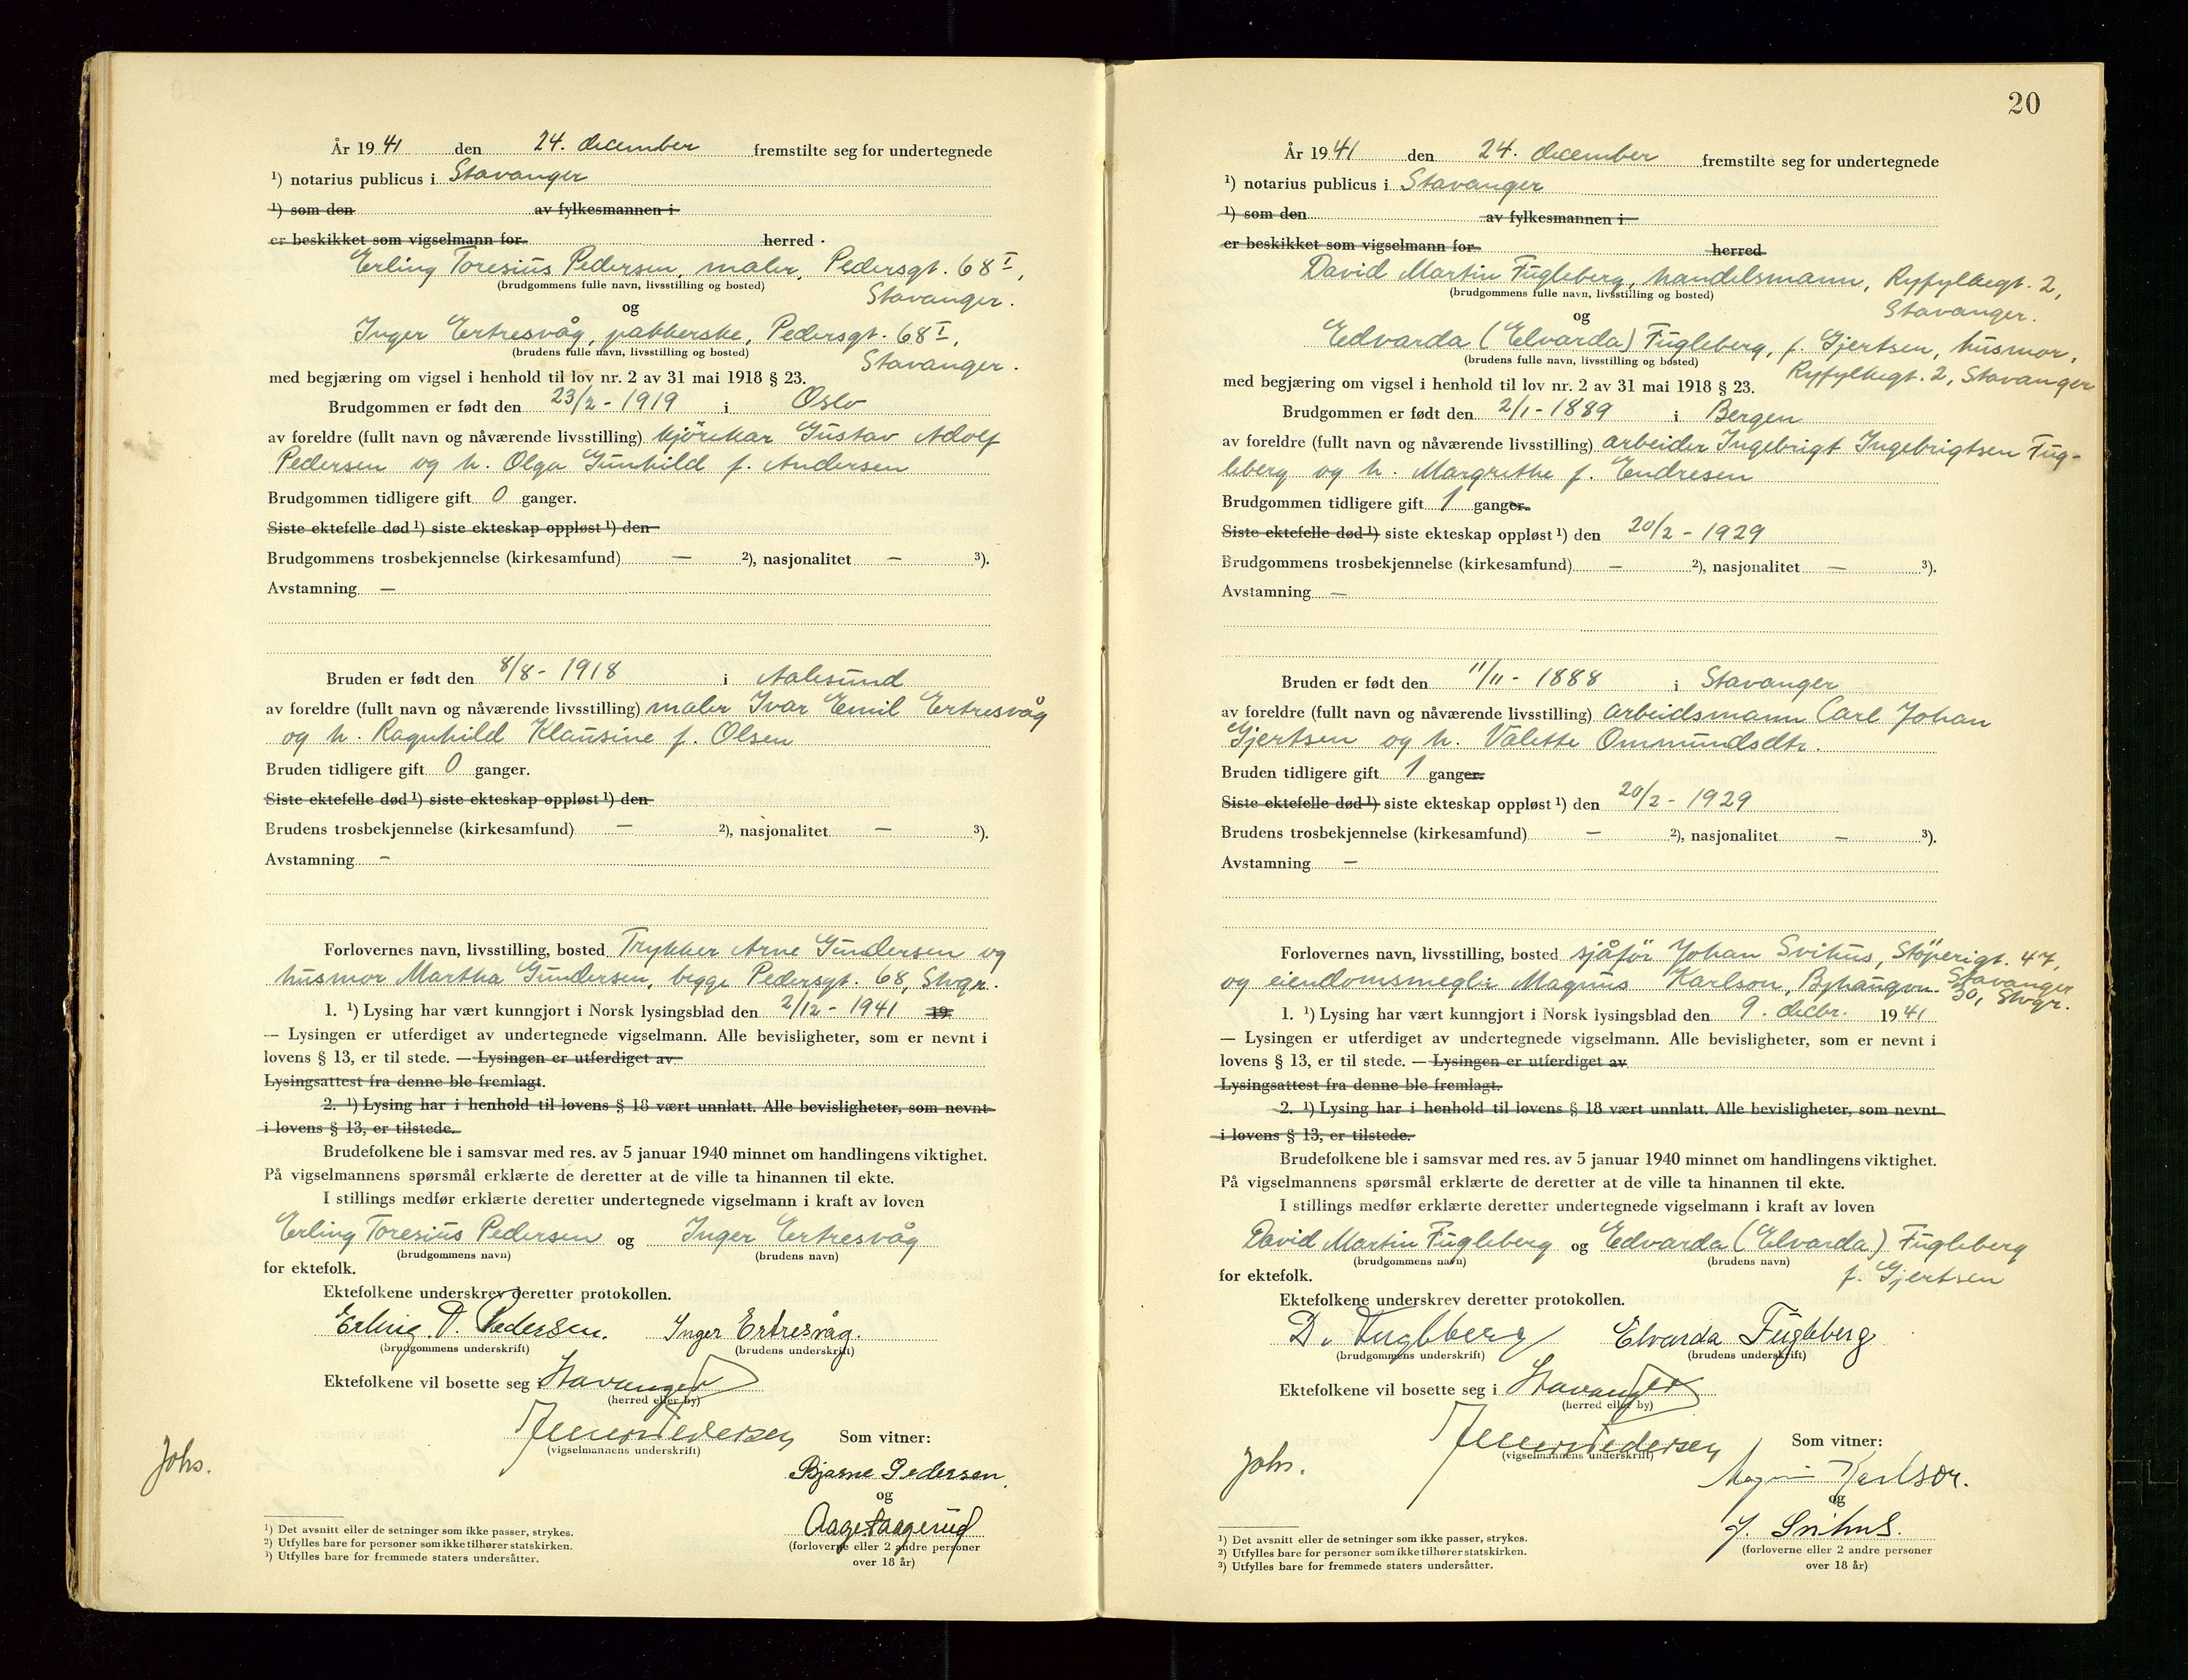 År 1941 den 24. december fremstilte seg for undertegnede
¹) notarius publicus i Stavanger
¹) som den av fylkesmannen i
er beskikket som vigselmann for herred
Erling Toresius Pedersen, maler, Pedersgt. 68 I,
(brudgommens fulle navn, livsstilling og bosted) Stavanger.
og
Inger Ertresvåg, pakkerske, Pedersgt. 68 I,
(brudens fulle navn, livsstilling og bosted) Stavanger.
med begjæring om vigsel i henhold til lov nr. 2 av 31 mai 1918 § 23.
Brudgommen er født den 23/2 - 1919 i Oslo
av foreldre (fullt navn og nåværende livsstilling) kjørekar Gustav Adolf
Pedersen og h. Olga Gunhild f. Andersen
Brudgommen tidligere gift 0 ganger.
Siste ektefelle død ¹) siste ekteskap oppløst ¹) den
Brudgommens trosbekjennelse (kirkesamfund) — ²), nasjonalitet — ³).
Avstamning —
Bruden er født den 8/8 - 1918 i Aalesund
av foreldre (fullt navn og nåværende livsstilling) maler Ivar Emil Ertresvåg
og h. Ragnhild Klausine f. Olsen
Bruden tidligere gift 0 ganger.
Siste ektefelle død ¹) siste ekteskap oppløst ¹) den
Brudens trosbekjennelse (kirkesamfund) — ²), nasjonalitet — ³).
Avstamning —
Forlovernes navn, livsstilling, bosted Trykker Arne Gundersen og
husmor Martha Gundersen, begge Pedersgt. 68, Stvgr.
1. ¹) Lysing har vært kunngjort i Norsk lysingsblad den 2/12 - 1941 19
— Lysingen er utferdiget av undertegnede vigselmann. Alle bevisligheter, som er nevnt i
lovens § 13, er til stede. — Lysingen er utferdiget av
Lysingsattest fra denne ble fremlagt.
2. ¹) Lysing har i henhold til lovens § 18 vært unnlatt. Alle bevisligheter, som nevnt
i lovens § 13, er tilstede.
Brudefolkene ble i samsvar med res. av 5 januar 1940 minnet om handlingens viktighet.
På vigselmannens spørsmål erklærte de deretter at de ville ta hinannen til ekte.
I stillings medfør erklærte deretter undertegnede vigselmann i kraft av loven
Erling Toresius Pedersen og Inger Ertresvåg
(brudgommens navn) (brudens navn)
for ektefolk.
Ektefolkene underskrev deretter protokollen.
Erling T. Pedersen. Inger Ertresvåg.
(brudgommens underskrift) (brudens underskrift)
Ektefolkene vil bosette seg i Stavanger
(herred eller by)
(vigselmannens underskrift) Som vitner:
Johs.
Bjarne Pedersen.
og
Aage Haagerud
(forloverne eller 2 andre personer
over 18 år)
¹) Det avsnitt eller de setninger som ikke passer, strykes.
²) Utfylles bare for personer som ikke tilhører statskirken.
³) Utfylles bare for fremmede staters undersåtter.
20
År 1941 den 24. december fremstilte seg for undertegnede
¹) notarius publicus i Stavanger
¹) som den av fylkesmannen i
er beskikket som vigselmann for herred
David Martin Fugleberg, handelsmann, Ryfylkegt. 2,
(brudgommens fulle navn, livsstilling og bosted) Stavanger.
og
Edvarda (Elvarda) Fugleberg, f. Gjertsen, husmor,
(brudens fulle navn, livsstilling og bosted) Ryfylkegt. 2, Stavanger
med begjæring om vigsel i henhold til lov nr. 2 av 31 mai 1918 § 23.
Brudgommen er født den 2/1 - 1889 i Bergen
av foreldre (fullt navn og nåværende livsstilling) arbeider Ingebrigt Ingebrigtsen Fug-
leberg og h. Margrethe f. Endresen
Brudgommen tidligere gift 1 ganger.
Siste ektefelle død ¹) siste ekteskap oppløst ¹) den 20/2 - 1929
Brudgommens trosbekjennelse (kirkesamfund) — ²), nasjonalitet — ³).
Avstamning —
Bruden er født den 11/11 - 1888 i Stavanger
av foreldre (fullt navn og nåværende livsstilling) arbeidsmann Carl Johan
Gjertsen og h. Valette Ommundsdtr.
Bruden tidligere gift 1 ganger.
Siste ektefelle død ¹) siste ekteskap oppløst ¹) den 20/2 - 1929
Brudens trosbekjennelse (kirkesamfund) — ²), nasjonalitet — ³).
Avstamning —
Forlovernes navn, livsstilling, bosted sjåfør Johan Svihus, Støperigt. 47, Stavanger
og eiendomsmegler Magnus Karlson, Byhaugvn. 30, Stvgr.
1. ¹) Lysing har vært kunngjort i Norsk lysingsblad den 9. decbr. 1941
— Lysingen er utferdiget av undertegnede vigselmann. Alle bevisligheter, som er nevnt i
lovens § 13, er til stede. — Lysingen er utferdiget av
Lysingsattest fra denne ble fremlagt.
2. ¹) Lysing har i henhold til lovens § 18 vært unnlatt. Alle bevisligheter, som nevnt
i lovens § 13, er tilstede.
Brudefolkene ble i samsvar med res. av 5 januar 1940 minnet om handlingens viktighet.
På vigselmannens spørsmål erklærte de deretter at de ville ta hinannen til ekte.
I stillings medfør erklærte deretter undertegnede vigselmann i kraft av loven
David Martin Fugleberg og Edvarda (Elvarda) Fugleberg
(brudgommens navn) (brudens navn) f. Gjertsen
for ektefolk.
Ektefolkene underskrev deretter protokollen.
D. Fugleberg Elvarda Fugleberg
(brudgommens underskrift) (brudens underskrift)
Ektefolkene vil bosette seg i Stavanger
(herred eller by)
(vigselmannens underskrift) Som vitner:
Johs.
Magnus Karlson.
og
J. Svihus.
(forloverne eller 2 andre personer
over 18 år)
¹) Det avsnitt eller de setninger som ikke passer, strykes.
²) Utfylles bare for personer som ikke tilhører statskirken.
³) Utfylles bare for fremmede staters undersåtter.